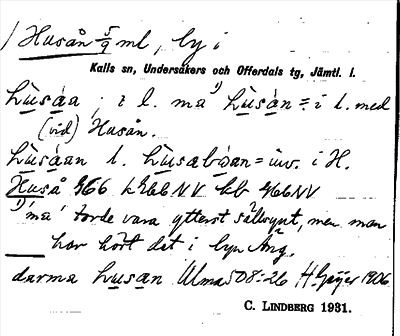 1) Husån 5/9 ml, by i
Kalls sn, Undersåkers och Offerdals tg, Jämtl. l.
hùsáa ; i l. ma 1) hùsán = i l. med
(vid) Husån.
hùsáan l. hùsabóan = inv. i H.
Huså 966 k 966 NV bb 466 NV
1) 'ma' torde vara ytterst sällsynt, men man
har hört det i byn Äng.
darma husan Ulma 508:26 H. Geijer 1906.
C. LINDBERG 1931.